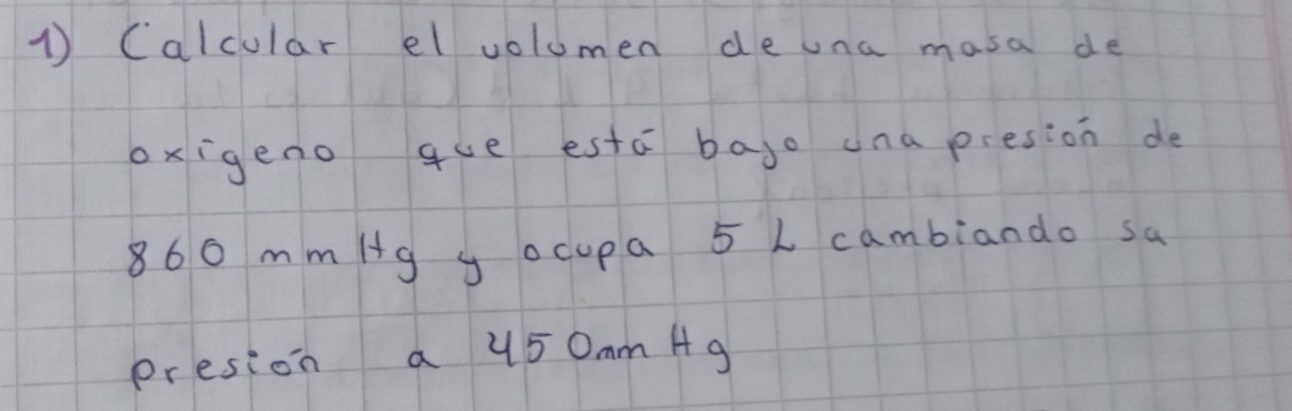 1) Calcular el volumen de una masa de
oxigeno que está bajo una presión de
860 mm Hg y ocupa 5 L cambiando su
presión a 450mm Hg